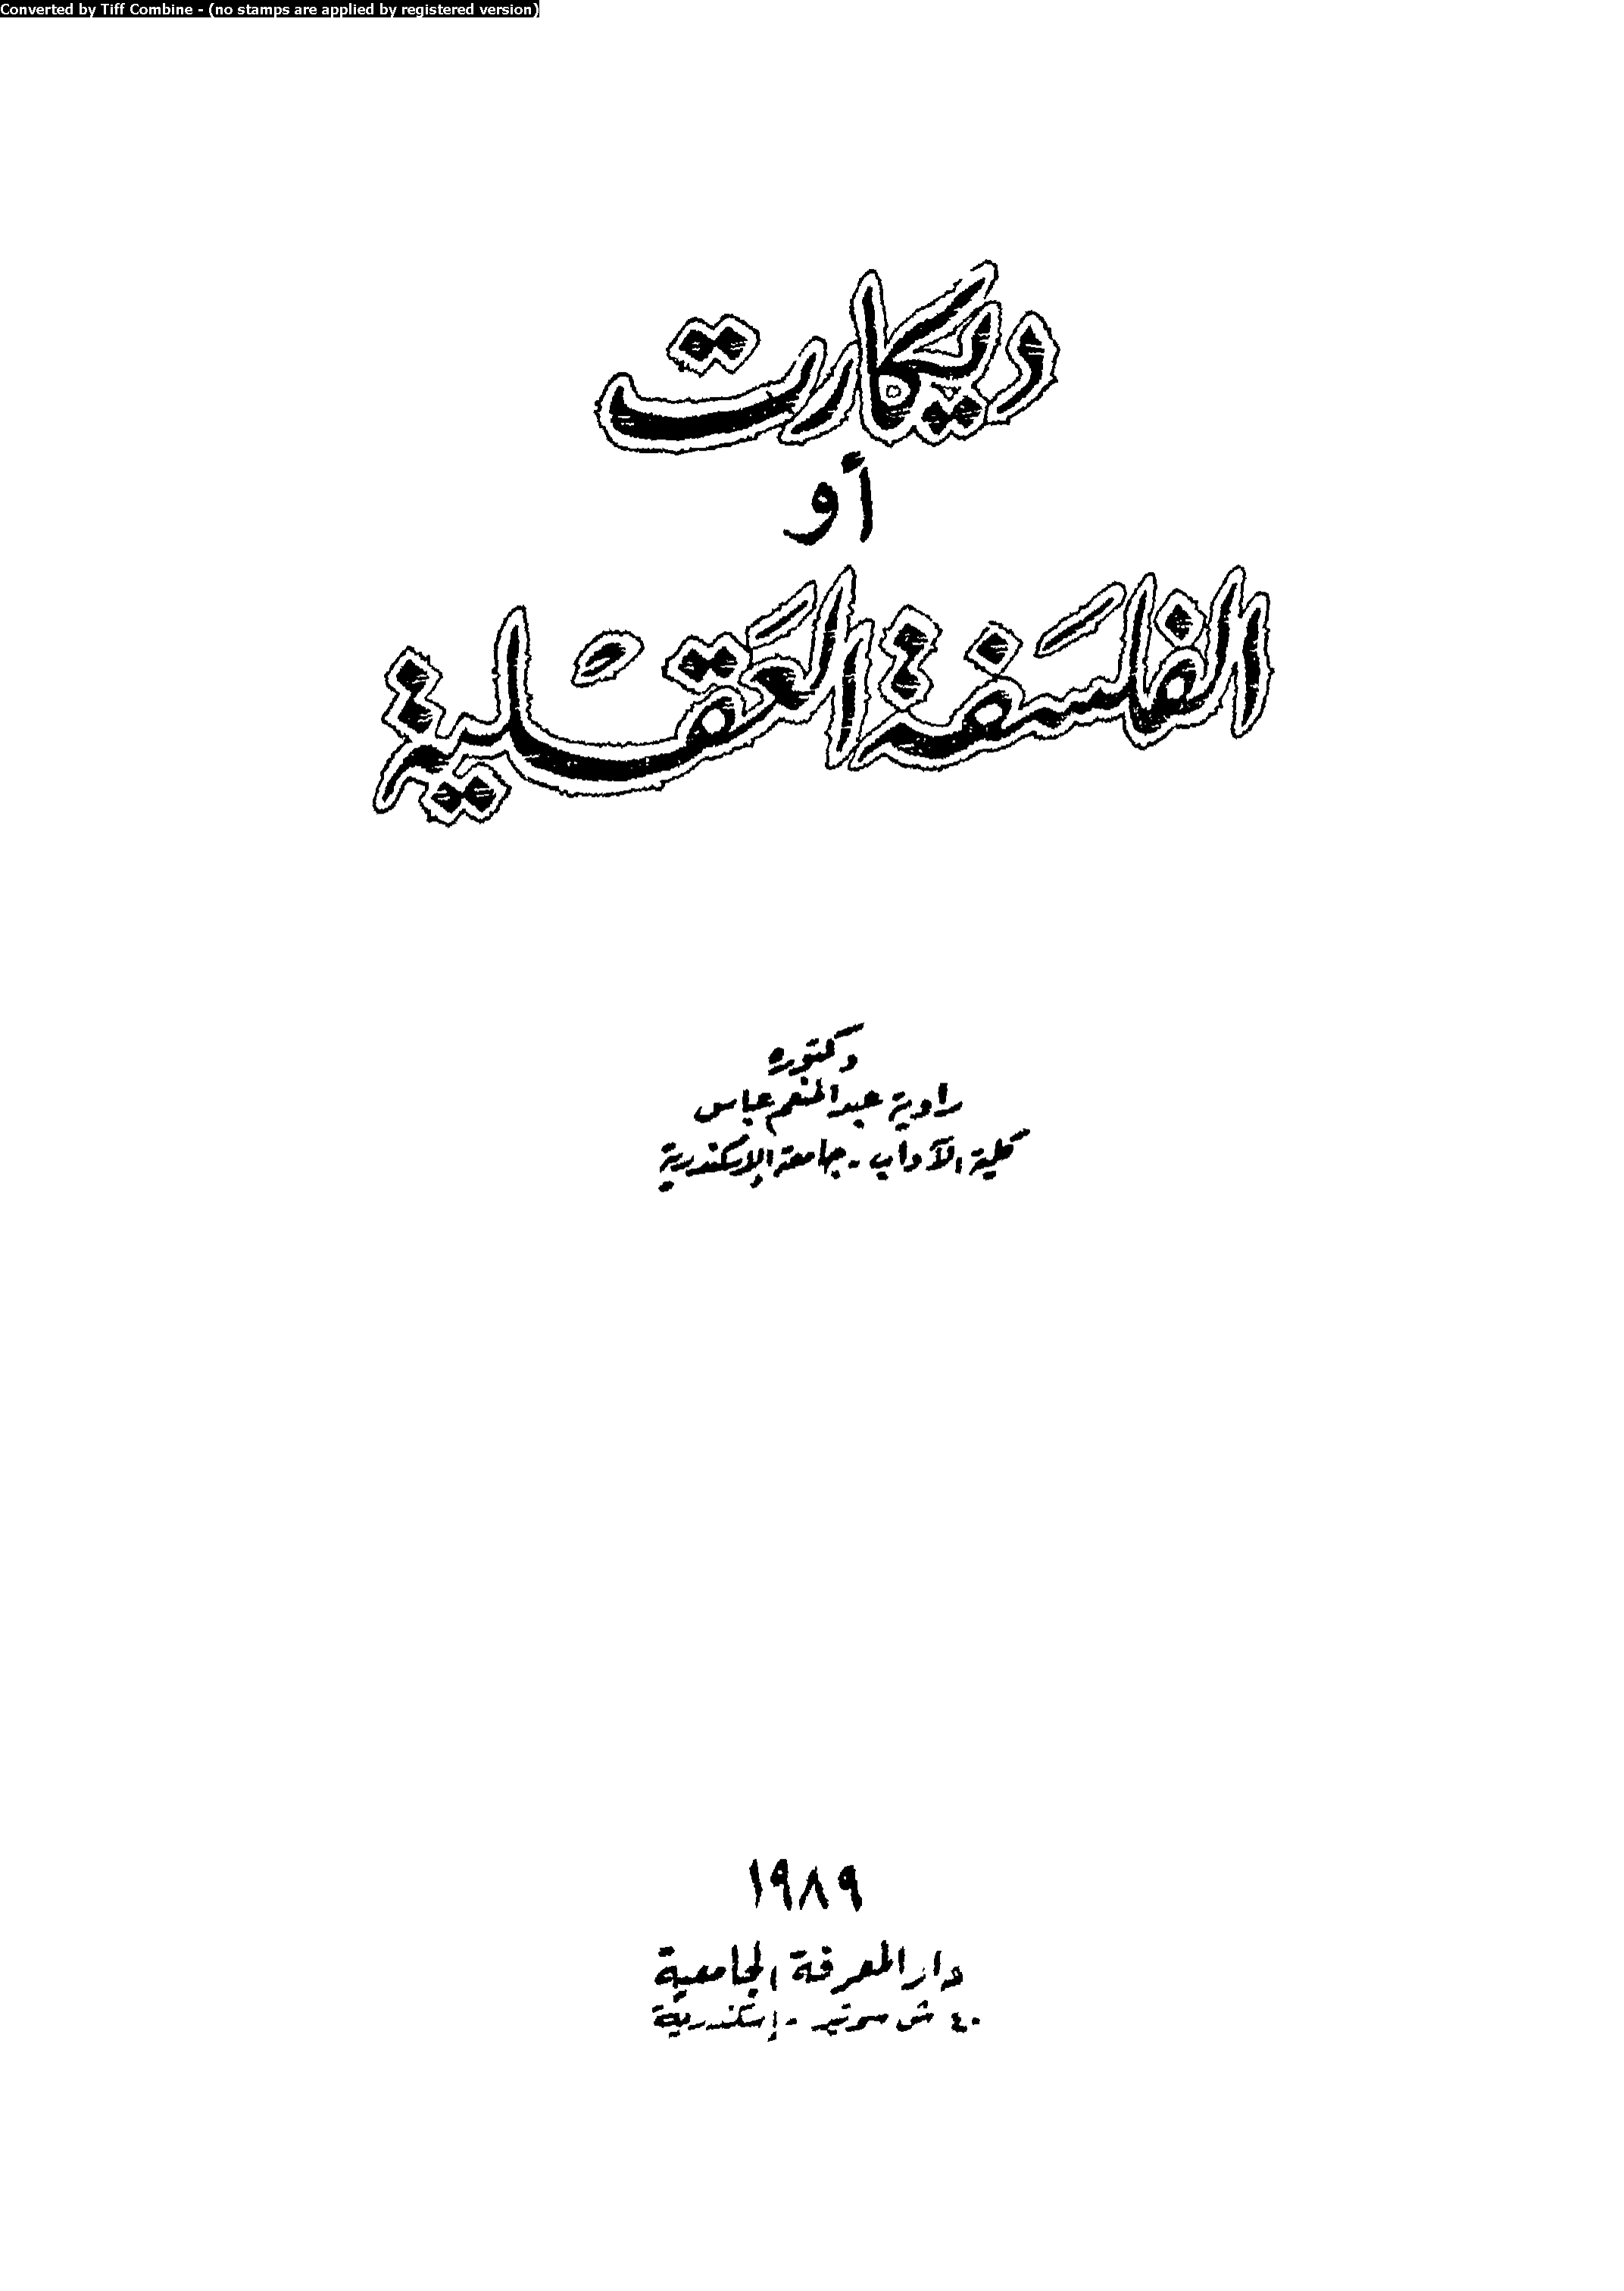 Converted by Tiff Combine - (no stamps are applied by registered version)
ديكارت
أو
الفلسَفة العَقليَة
دكتوره
راوية عبد المنعم عباس
كلية الآداب - جامعة الإسكندرية
١٩٨٩
دار المعرفة الجامعية
٤٠ ش سوتير - إسكندرية